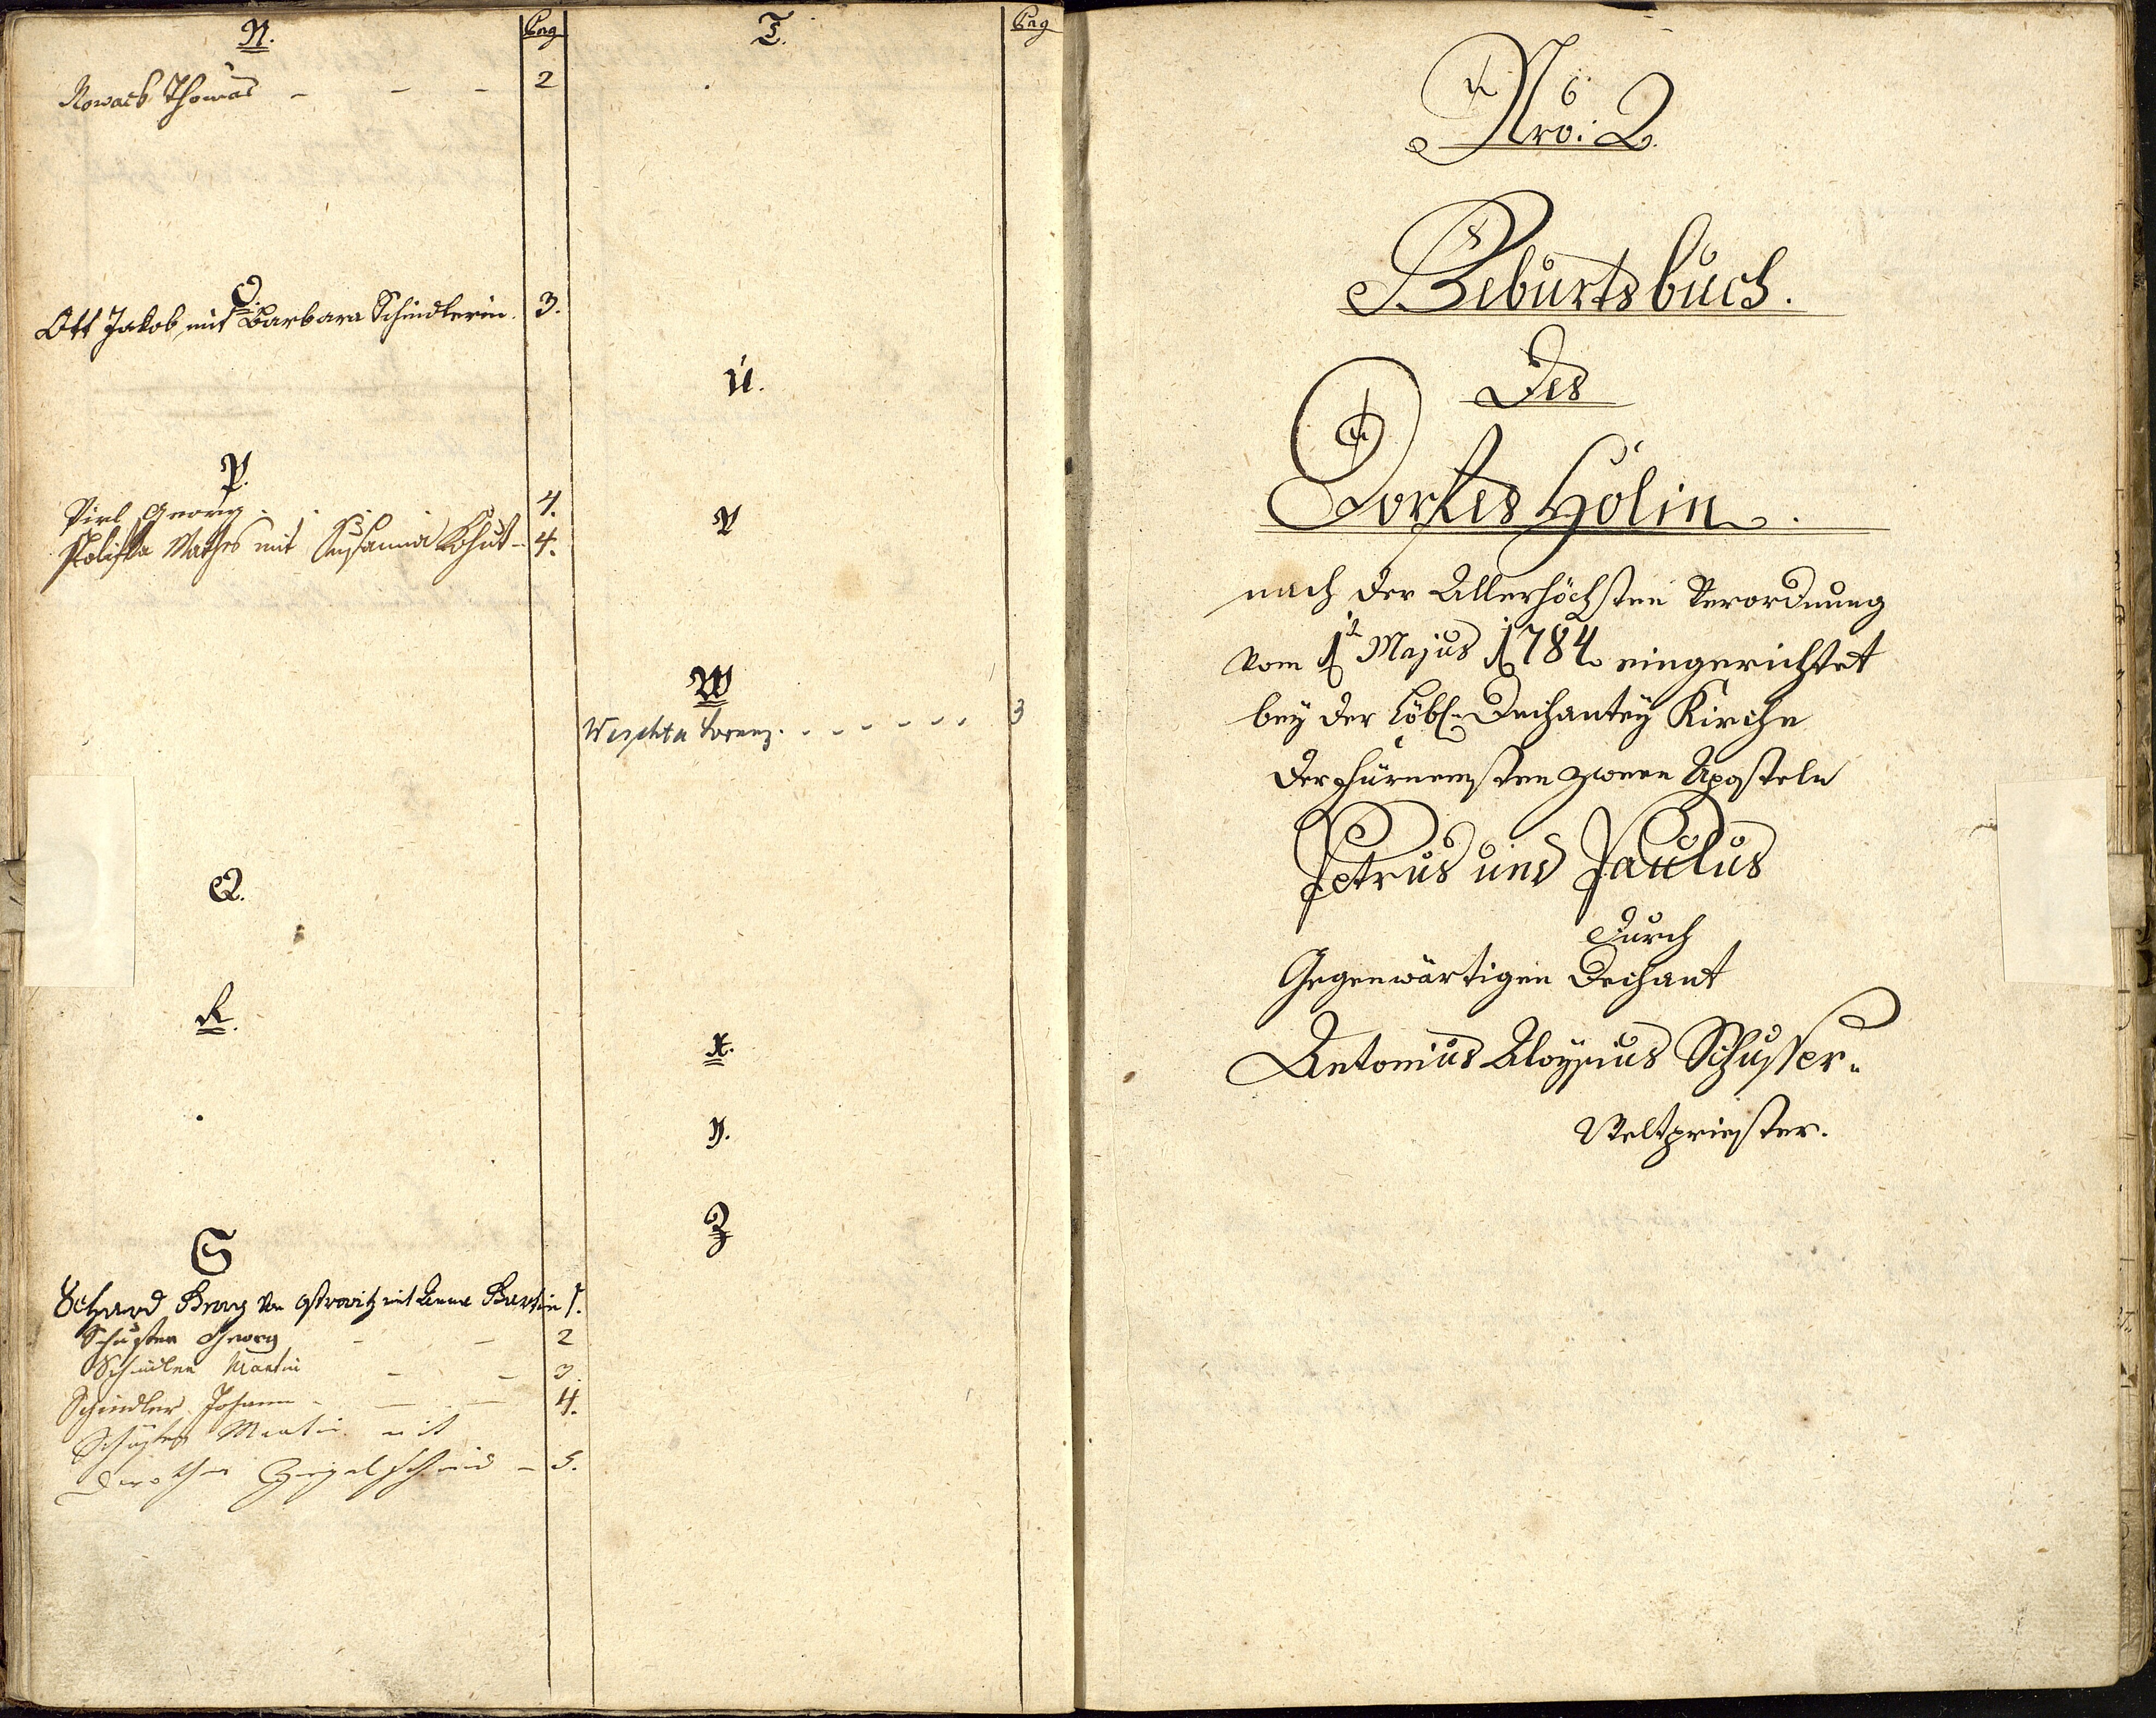 N.
Pag
Nowack Thomas - - - 2
O.
Ott Jakob, mit Barbara Schindlerin. 3.
P.
Pirl Georg . . . 4.
Polifka Mathes mit Susanna Kohut - 4.
Q.
R.
S
Schard Georg von Ostrowitz mit Anna Bartin 1.
Schuster Georg - - 2
Schindler Martin - - 3.
Schindler Johann - - - 4.
Schuster Martin mit
Dorothea Ziegelschmid - 5.
T.
Pag
U.
V
W
Weschta Lorenz. . . . - - - - 3
X.
Y.
Z
Nro: 2.
Geburtsbuch.
Des
Dorfes Holin.
nach der Allerhöchsten Verordnung
vom 1t Majus 1784 eingerichtet
bey der Löbl. Dechantey Kirche
der fürnemsten zween Aposteln
Petrus und Paulus
durch
Gegenwärtigen Dechant
Antonius Aloysius Schusser.
Weltpriester.